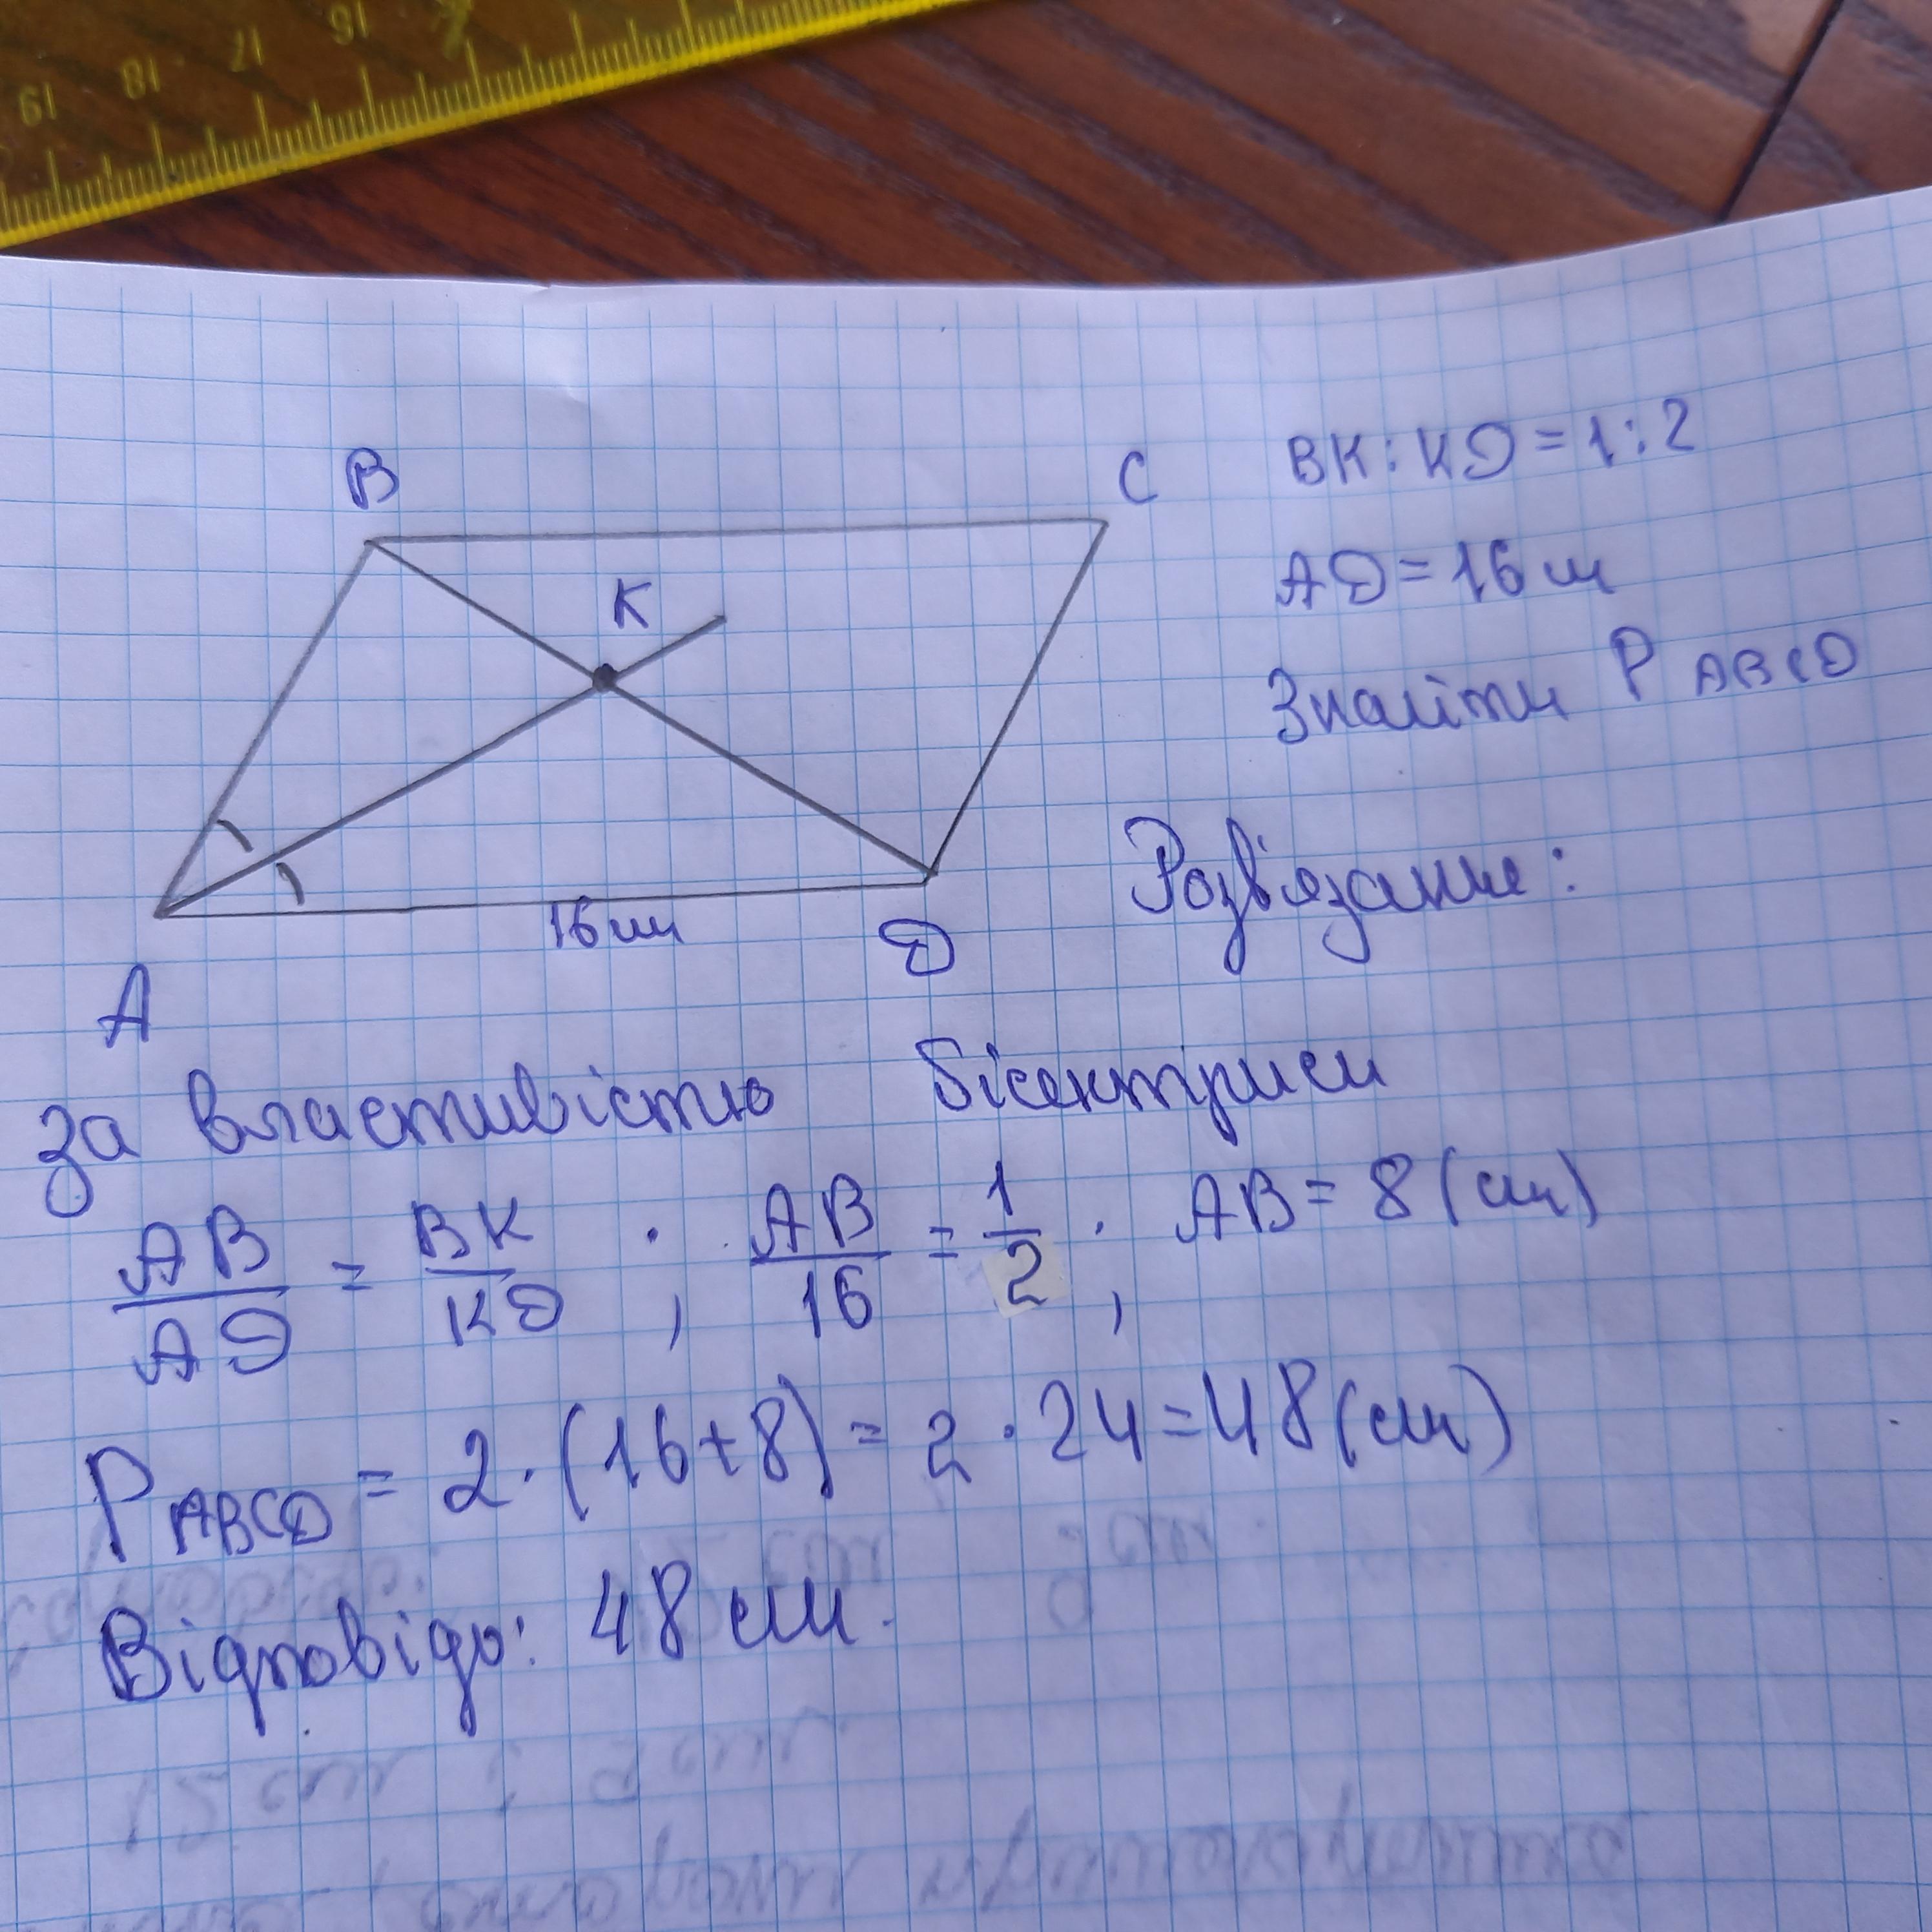 19 18 17 16
B
C
BK : KD = 1 : 2
K
AD = 16 см
Знайти P ABCD
Розв'язання:
16 см
D
A
за властивістю бісектриси
AB/AD = BK/KD ; AB/16 = 1/2 ; AB = 8 (см)
P ABCD = 2 · (16+8) = 2 · 24 = 48 (см)
Відповідь: 48 см.